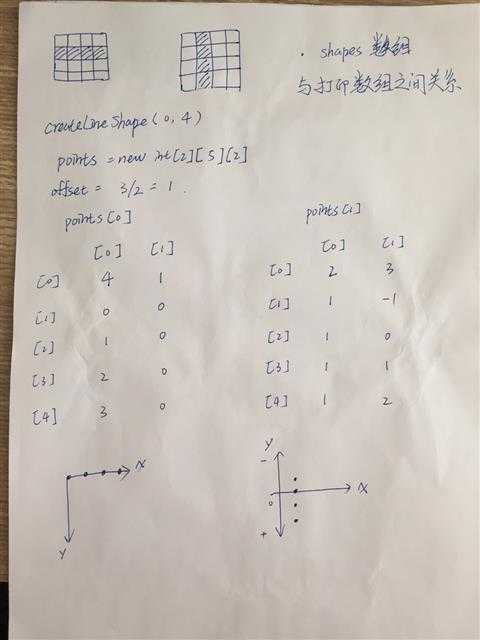 · shapes 数组
与打印数组之间关系
createLineShape(0, 4)
points = new int[2][5][2]
offset = 3/2 = 1.
points[0]
[0] [1]
[0] 4 1
[1] 0 0
[2] 1 0
[3] 2 0
[4] 3 0
points[1]
[0] [1]
[0] 2 3
[1] 1 -1
[2] 1 0
[3] 1 1
[4] 1 2
X
Y
Y
-
0
X
+